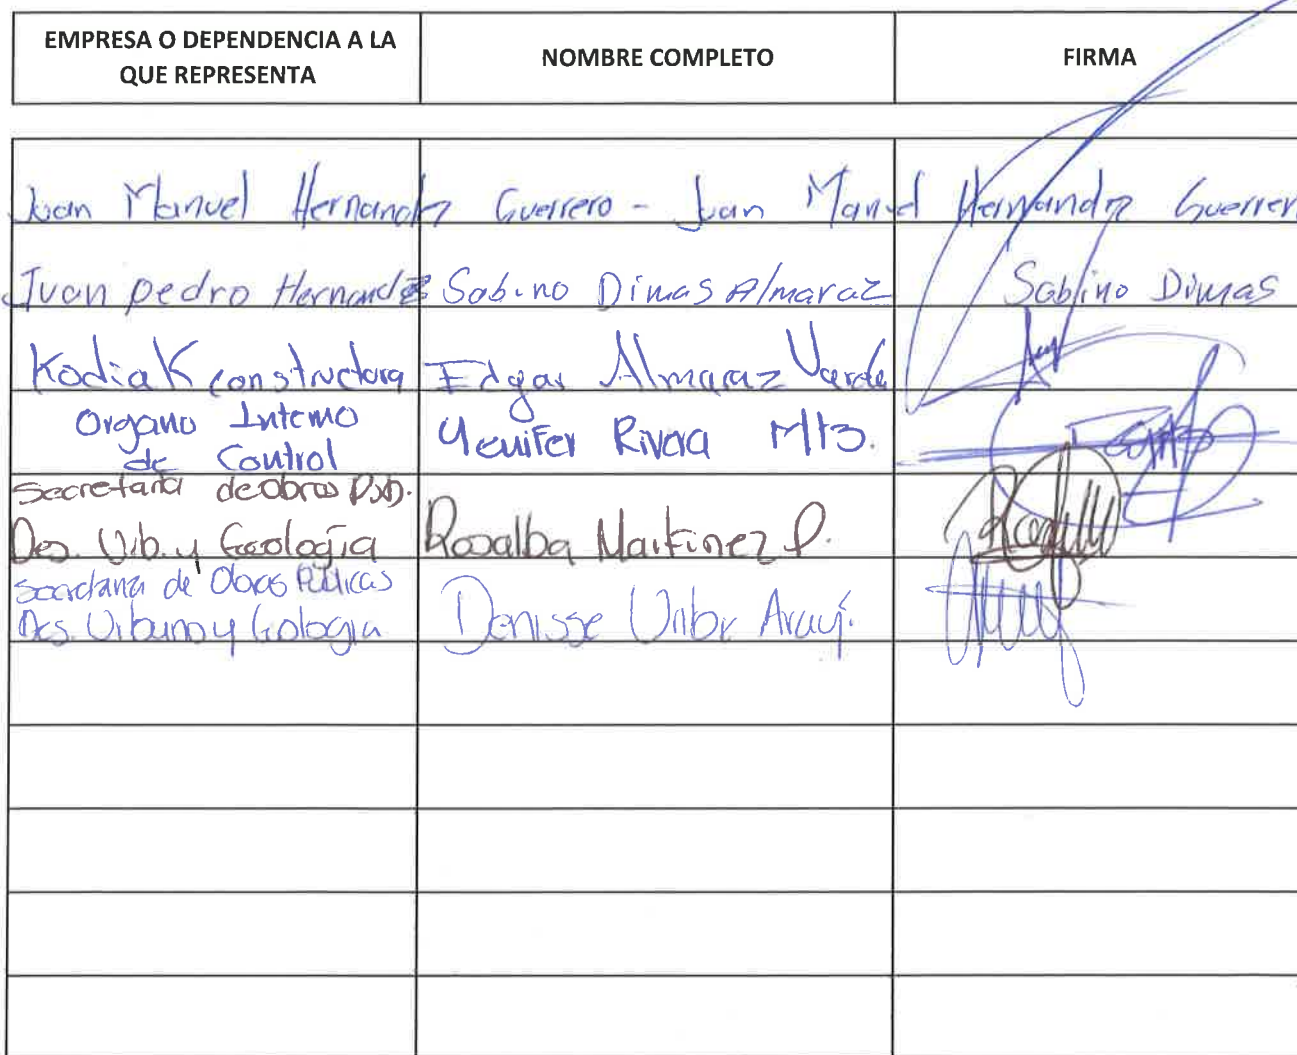 EMPRESA O DEPENDENCIA A LA
QUE REPRESENTA
NOMBRE COMPLETO
FIRMA
Juan Manuel Hernandz Guerrero - Juan Manuel Hernandz Guerrer
Juan pedro Hernandez Sabino Dimas Almaraz Sabino Dimas
Kodiak constructora Edgar Almaraz Varde
Organo Interno
de Control
Yenifer Rivera Mtz.
Secretaria de obras Pub.
Des. Urb. y Ecología
Rosalba Martinez P.
Secretaria de Obras Públicas
Des. Urbano y Ecologia
Denisse Uribe